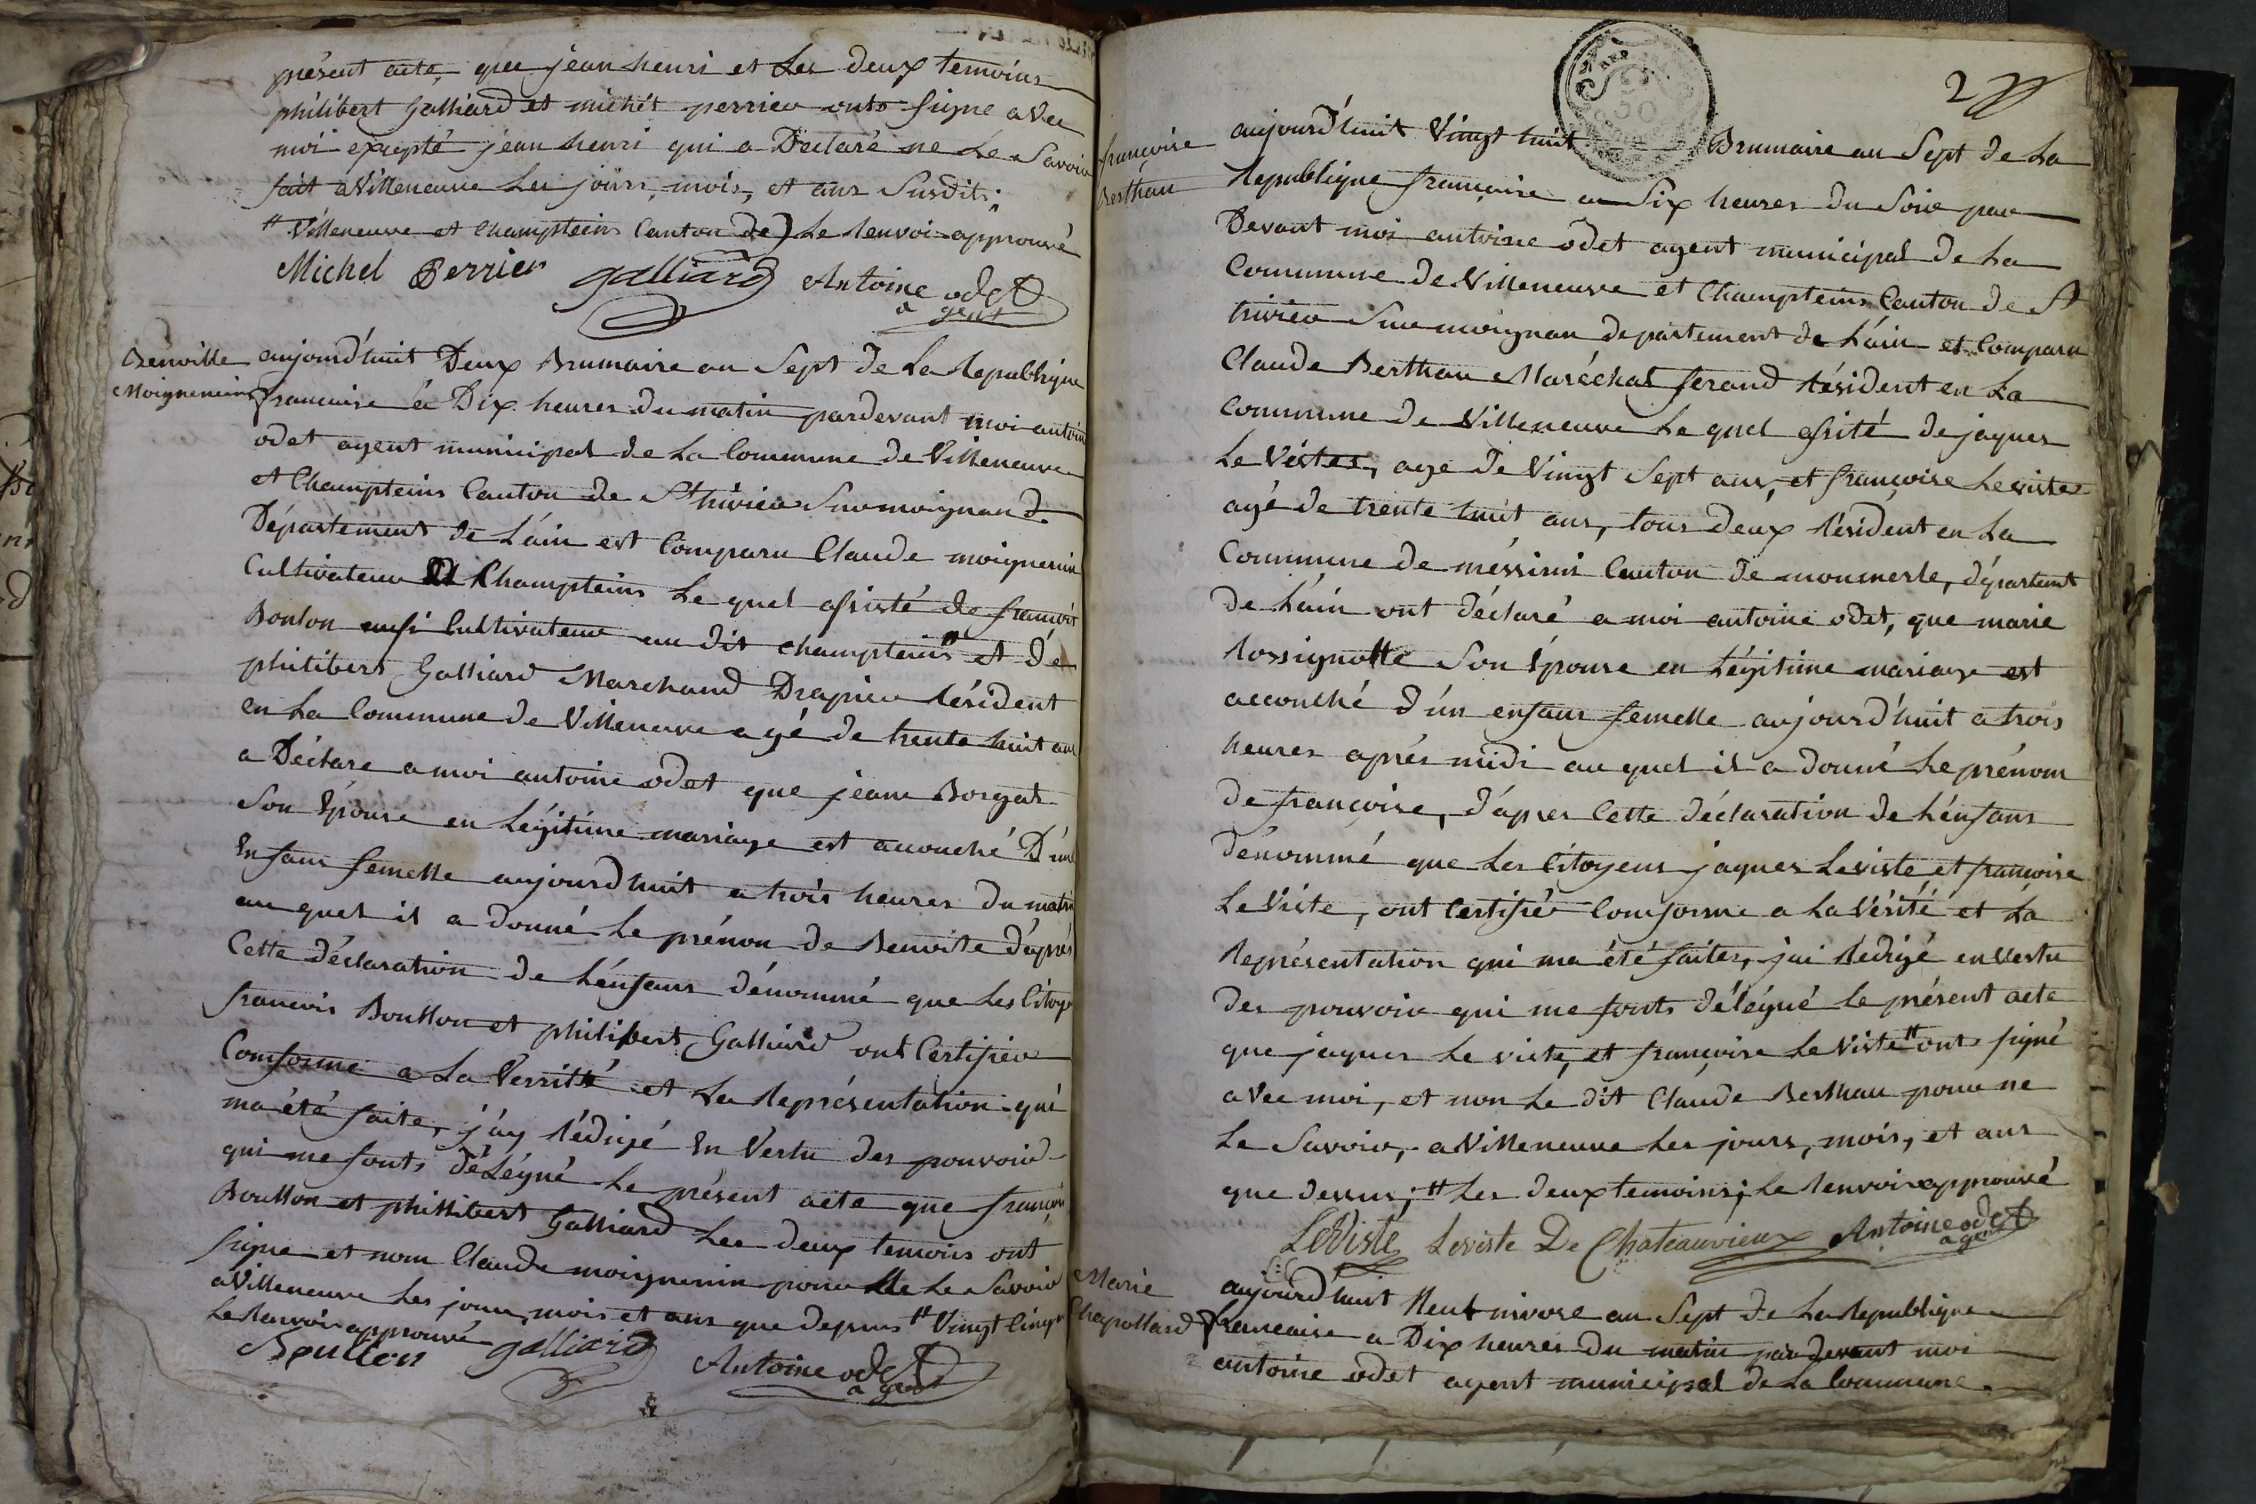 présent acte, que jean henri et Les deux temoins
philibert Galliard et michél perrier onts signe avec
moi excepté jean henri qui a Déclaré ne Lé Savoir
fait aVilleneuve Les jours, mois, et ans Susdits;
" Villeneuve et Champteins Canton de) Le renvoi approuvé
Michel Perrier galliard Antoine odet
agent
Benoite
Moignenin
aujourd'huit Deux Brumaire an Sept de La Republique
francaise à Dix heures du matin pardevant moi antoine
odet agent municipal de La Commune de Villeneuve
et Champteins Canton de St trivier Sur moignand
Département de L'ain est Comparu Claude moignenin
Cultivateur Champteins Le quel assisté de francois
Boulon aussi Cultivateur au dit Champteins" et dé
philibert Galliard Marchand Drapier Résident
en La Commune de Villeneuve agé de trente huit ans
a Déclare a moi antoine odet que jeanne Borgat
Son Épouse en Légitime mariage est accouché D'un
Enfant femelle aujourd'huit a trois heures du matin
au quel il a donné Le prénom de Benoite d'aprés
Cette déclaration de L'énfant dénommé que Les Citoye
francois Boullon et philibert Galliard ont Certifier
Comforme a La Verrité et La Représentation qui
ma été faite, j'ay rédigé En Vertu des pouvoir
qui me sonts déLégué Le présent acte que francois
Boullon et phillibert Galliard Les deux temoins ont
signe et nom Claude moignenin pour ne Le Savoir
aVilleneuve Les jours, mois et ans que depsus " Vingt Cinq
Le Renvoi approuvé
Boullon galliard Antoine odet
agent
2
françoise
Berthau
aujourd'huit Vingt huit Brumaire an Sept de La
Republique francaise a Six heures du Soir par
Devant moi antoine odet agent municipal de La
Commune de Villeneuve et Champteins Canton de St
trivier Sur moignan departement de L'ain est Comparu
Claude Berthau Maréchal ferand Résident en La
Commune de Villeneuve Le quel assité de jaques
Le Vistes, age de Vingt Sept ans, et françoise Leviste
agé de trente huit ans, tous deux Résident en La
Commune de méssimi Canton de monmerle, départemt
de L'ain ont déclaré a moi antoine odet, que marie
Rossignolle Son Épouse en Légitime mariage est
accouché d'un enfant femelle aujourd'huit a trois
heures aprés midi au quel il a donné Le prénom
de françoise, d'apres Cette déclaration de L'énfant
dénommé que Les Citoyens jaques Leviste et françoise
Le Viste, ont Certifiér Comforme a La Vérité et La
Représentation qui ma été faites, jai Rédigé en Vertu
des pouvoir qui me sonts délégué Le présent acte
que jaques Le viste, et françoise Le Viste" ont signé
aVec moi, et non Lé dit Claude Berthau pour ne
Le Savoir, aVilleneuve Les jours, mois, et ans
que dessus; " Les deux temoins; Le Renvoi approuvé
LeViste Leviste De Chateauvieux Antoine odet
agent
Marie
Chapollard
aujourd'huit Neuf nivose an Sept de La Republique
francaise a Dix heures du matin par devant moi
antoine odet agent municipal de La Commune